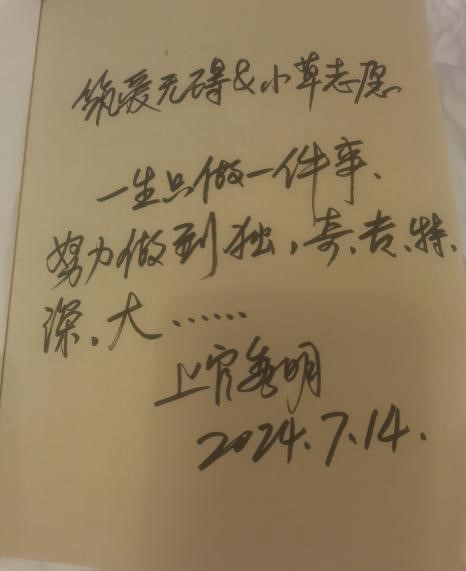 筑爱无碍&小草志愿
一生只做一件事、
努力做到独,奇、专、特、
深、大......
上官秀明
2024.7.14.